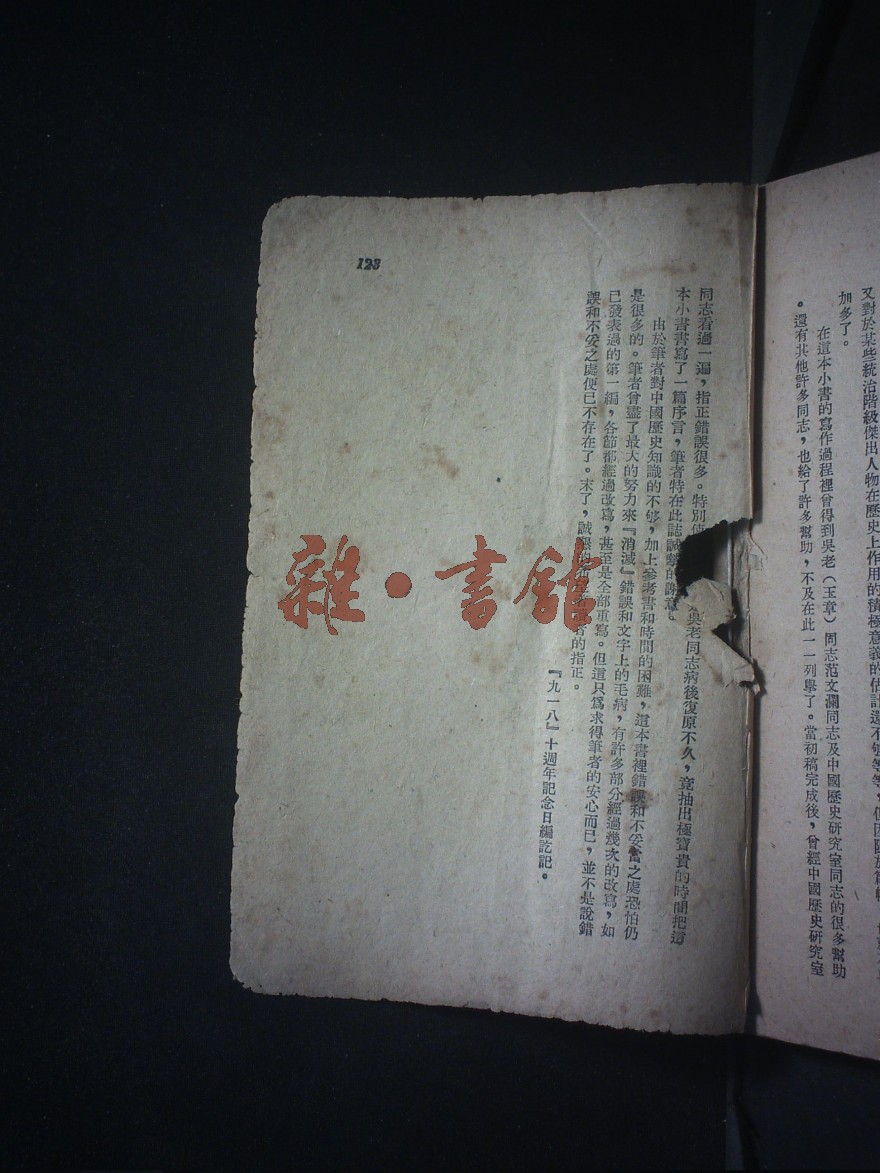 又對於某些統治階級傑出人物在歷史上作用的積極意義的估計還不够等等，
加多了。
在這本小書的寫作過程裡曾得到吳老（玉章）同志范文瀾同志及中國歷史研究室同志的很多幫助
。還有其他許多同志，也給了許多幫助，不及在此一一列舉了。當初稿完成後，曾經中國歷史研究室
同志看過一遍，指正錯誤很多。特別使
吳老同志病後復原不久，竟抽出極寶貴的時間把這
本小書書寫了一篇序言，筆者特在此誌誠摯的謝意。
由於筆者對中國歷史知識的不够，加上參考書和時間的困難，這本書裡錯誤和不妥當之處恐怕仍
是很多的。筆者曾盡了最大的努力來『消滅』錯誤和文字上的毛病，有許多部分經過幾次的改寫，如
已發表過的第一編，各節都經過改寫，甚至是全部重寫。但這只爲求得筆者的安心而已，並不是說錯
誤和不妥之處便已不存在了。末了，誠懇的希望者的指正。
『九一八』十週年記念日編訖記。
123
雜·書館